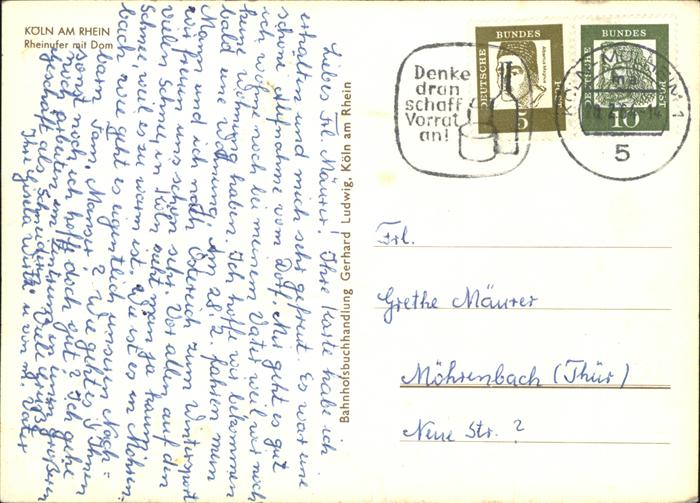 KÖLN AM RHEIN
Rheinufer mit Dom
Liebes Frl. Mäurer! Ihre Karte habe ich
erhalten und mich sehr gefreut. Es war eine
schöne Aufnahme vom Dorf. Mir geht es gut
ich wohne noch bei meinem Vater weil wir noch
keine Wohnung haben. Ich hoffe wir bekommen
bald eine Wohnung. Am 28.2. fahren mein
Mann und ich nach Östereich zum Wintersport
wir freuen uns schon sehr. Vor allen auf den
vielen Schnee, in Köln sieht man ja kaum
Schnee, weil es zu warm ist. Wie ist es in Möhren-
bach wie geht es eigentlich unseren Nach=
barn Fam. Manser? Wie geht es Ihnen
sonst noch ich hoffe doch gut? Ich gehe
noch arbeiten im Zentrum in einem größeren
Geschäfte als Schneiderin. Viele Grüße
Ihre Gisela u. von m. Vater
Bahnhofsbuchhandlung Gerhard Ludwig, Köln am Rhein
Denke
dran
schaff
Vorrat
an!
DEUTSCHE
BUNDES
POST
Albertus Magnus
5
DEUTSCHE
BUNDES
POST
10
KÖLN-MÜLHEIM 1
ma
5
Frl.
Grethe Mäurer
Möhrenbach (Thür)
Neue Str. ?